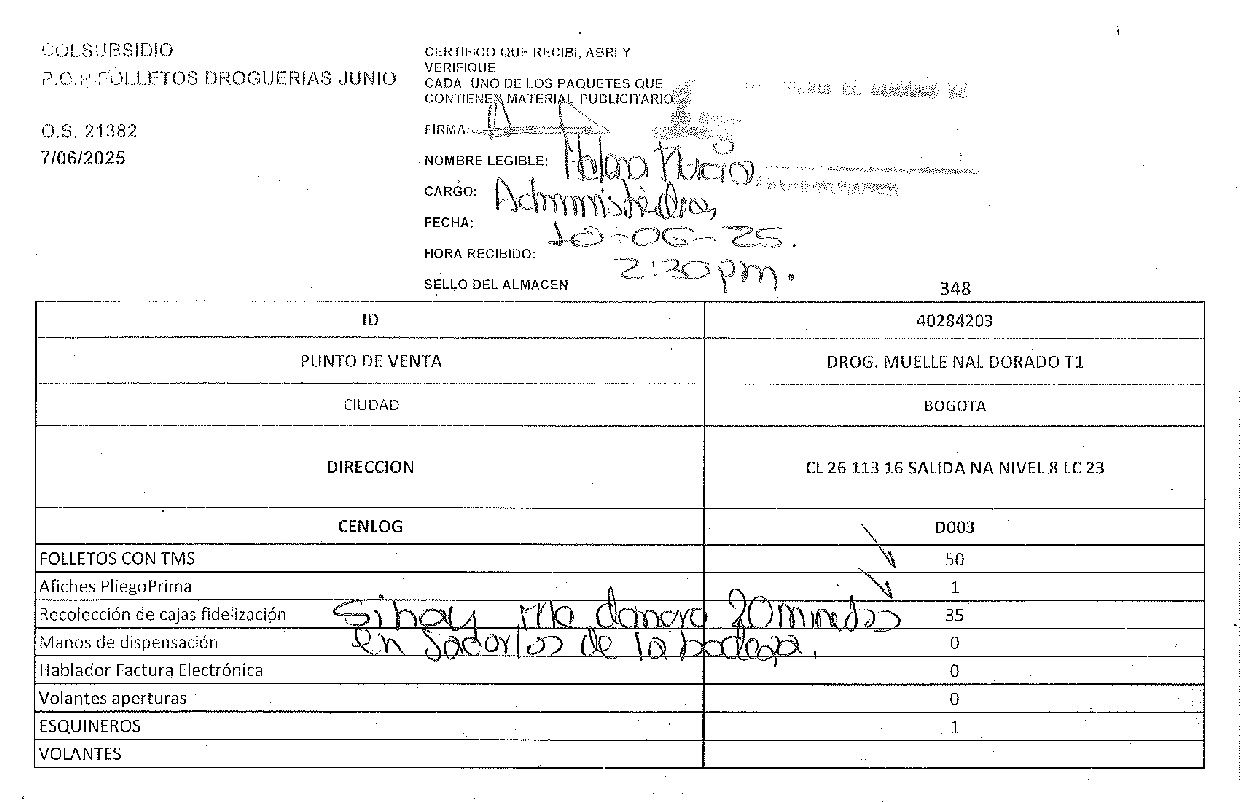 COLSUBSIDIO
P.O.P FOLLETOS DROGUERIAS JUNIO
O.S. 21382
7/06/2025
CERTIFICO QUE RECIBI, ABRI Y
VERIFIQUE
CADA UNO DE LOS PAQUETES QUE
CONTIENEN MATERIAL PUBLICITARIO
FIRMA:
NOMBRE LEGIBLE:
CARGO: Administradora
FECHA: 10-06-25.
HORA RECIBIDO: 2:30 pm.
SELLO DEL ALMACEN
348
ID 40284203
PUNTO DE VENTA DROG. MUELLE NAL DORADO T1
CIUDAD BOGOTA
DIRECCION CL 26 113 16 SALIDA NA NIVEL 8 LC 23
CENLOG D003
FOLLETOS CON TMS 50
Afiches PliegoPrima 1
Recolección de cajas fidelización Si hay me demoro 20 minutos 35
Manos de dispensación en sacarlos de la bodega. 0
Hablador Factura Electrónica 0
Volantes aperturas 0
ESQUINEROS 1
VOLANTES